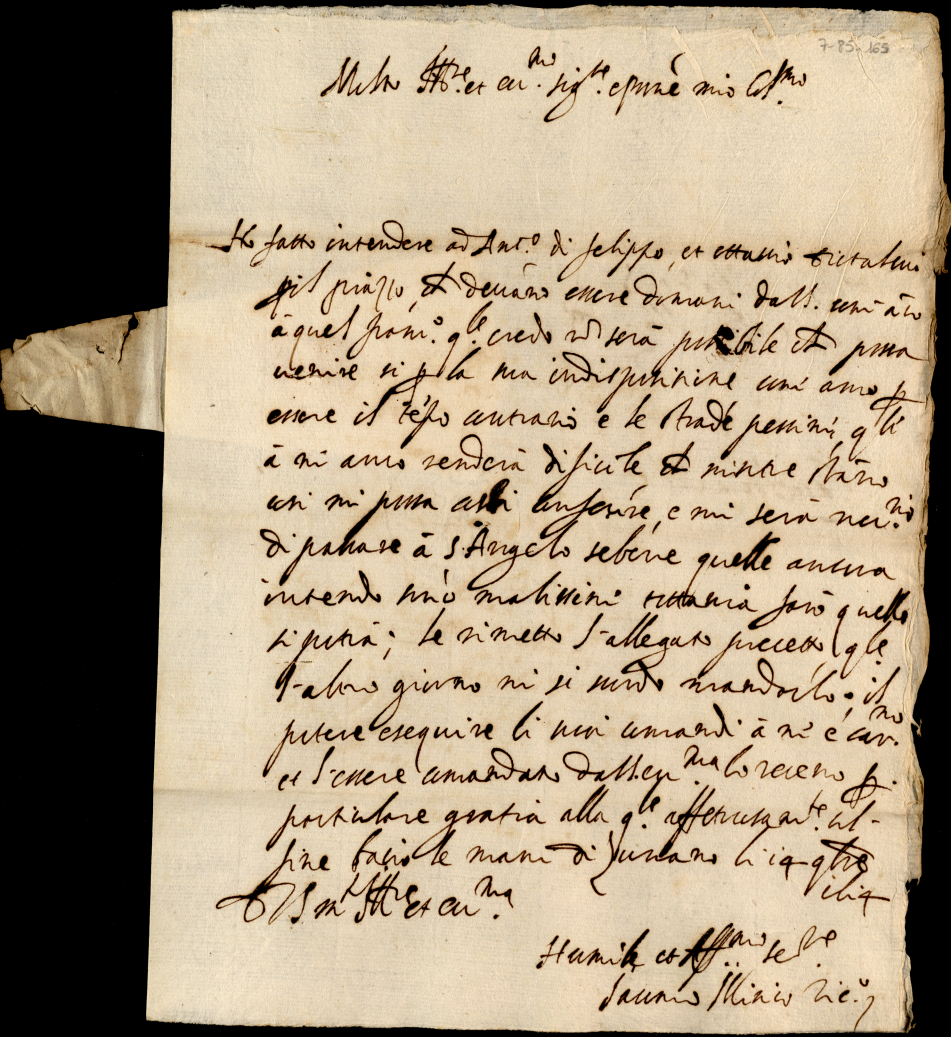 7-85-165
Molto Ill.re et ecc.mo sig.re e prone mio Col.mo
Ho fatto intendere ad Ant.o di felippo, et ottavio
pil prezzo, ch devano essere domani dall.
à quel q.le credo nō serà possibile ch possa
venire si p la sua indispositione come anco p
essere il tēpo contrario e le strade pessime, q li
à mi anco renderà dificile, ch mentre stāno
cosi mi possa conferire, e mi serà nec.rio
di passare à S. Angelo sebene quelle ancora
intendo sono malissime tuttavia farò quello
si potrà; le rimetto l'allegato precetto, q le
l'altro giorno mi si scordò mandarlo; il
potere eseguire li suoi comandi à me è car.mo
et l'essere comandato dall ecc.ma lo recevo p.
particulare gratia alla q.le affettuosam.te al-
fine bacio le mani di li 14 9bre
1614
D V S m.to Ill.re et ecc.ma
Humile et Aff.mo se.re